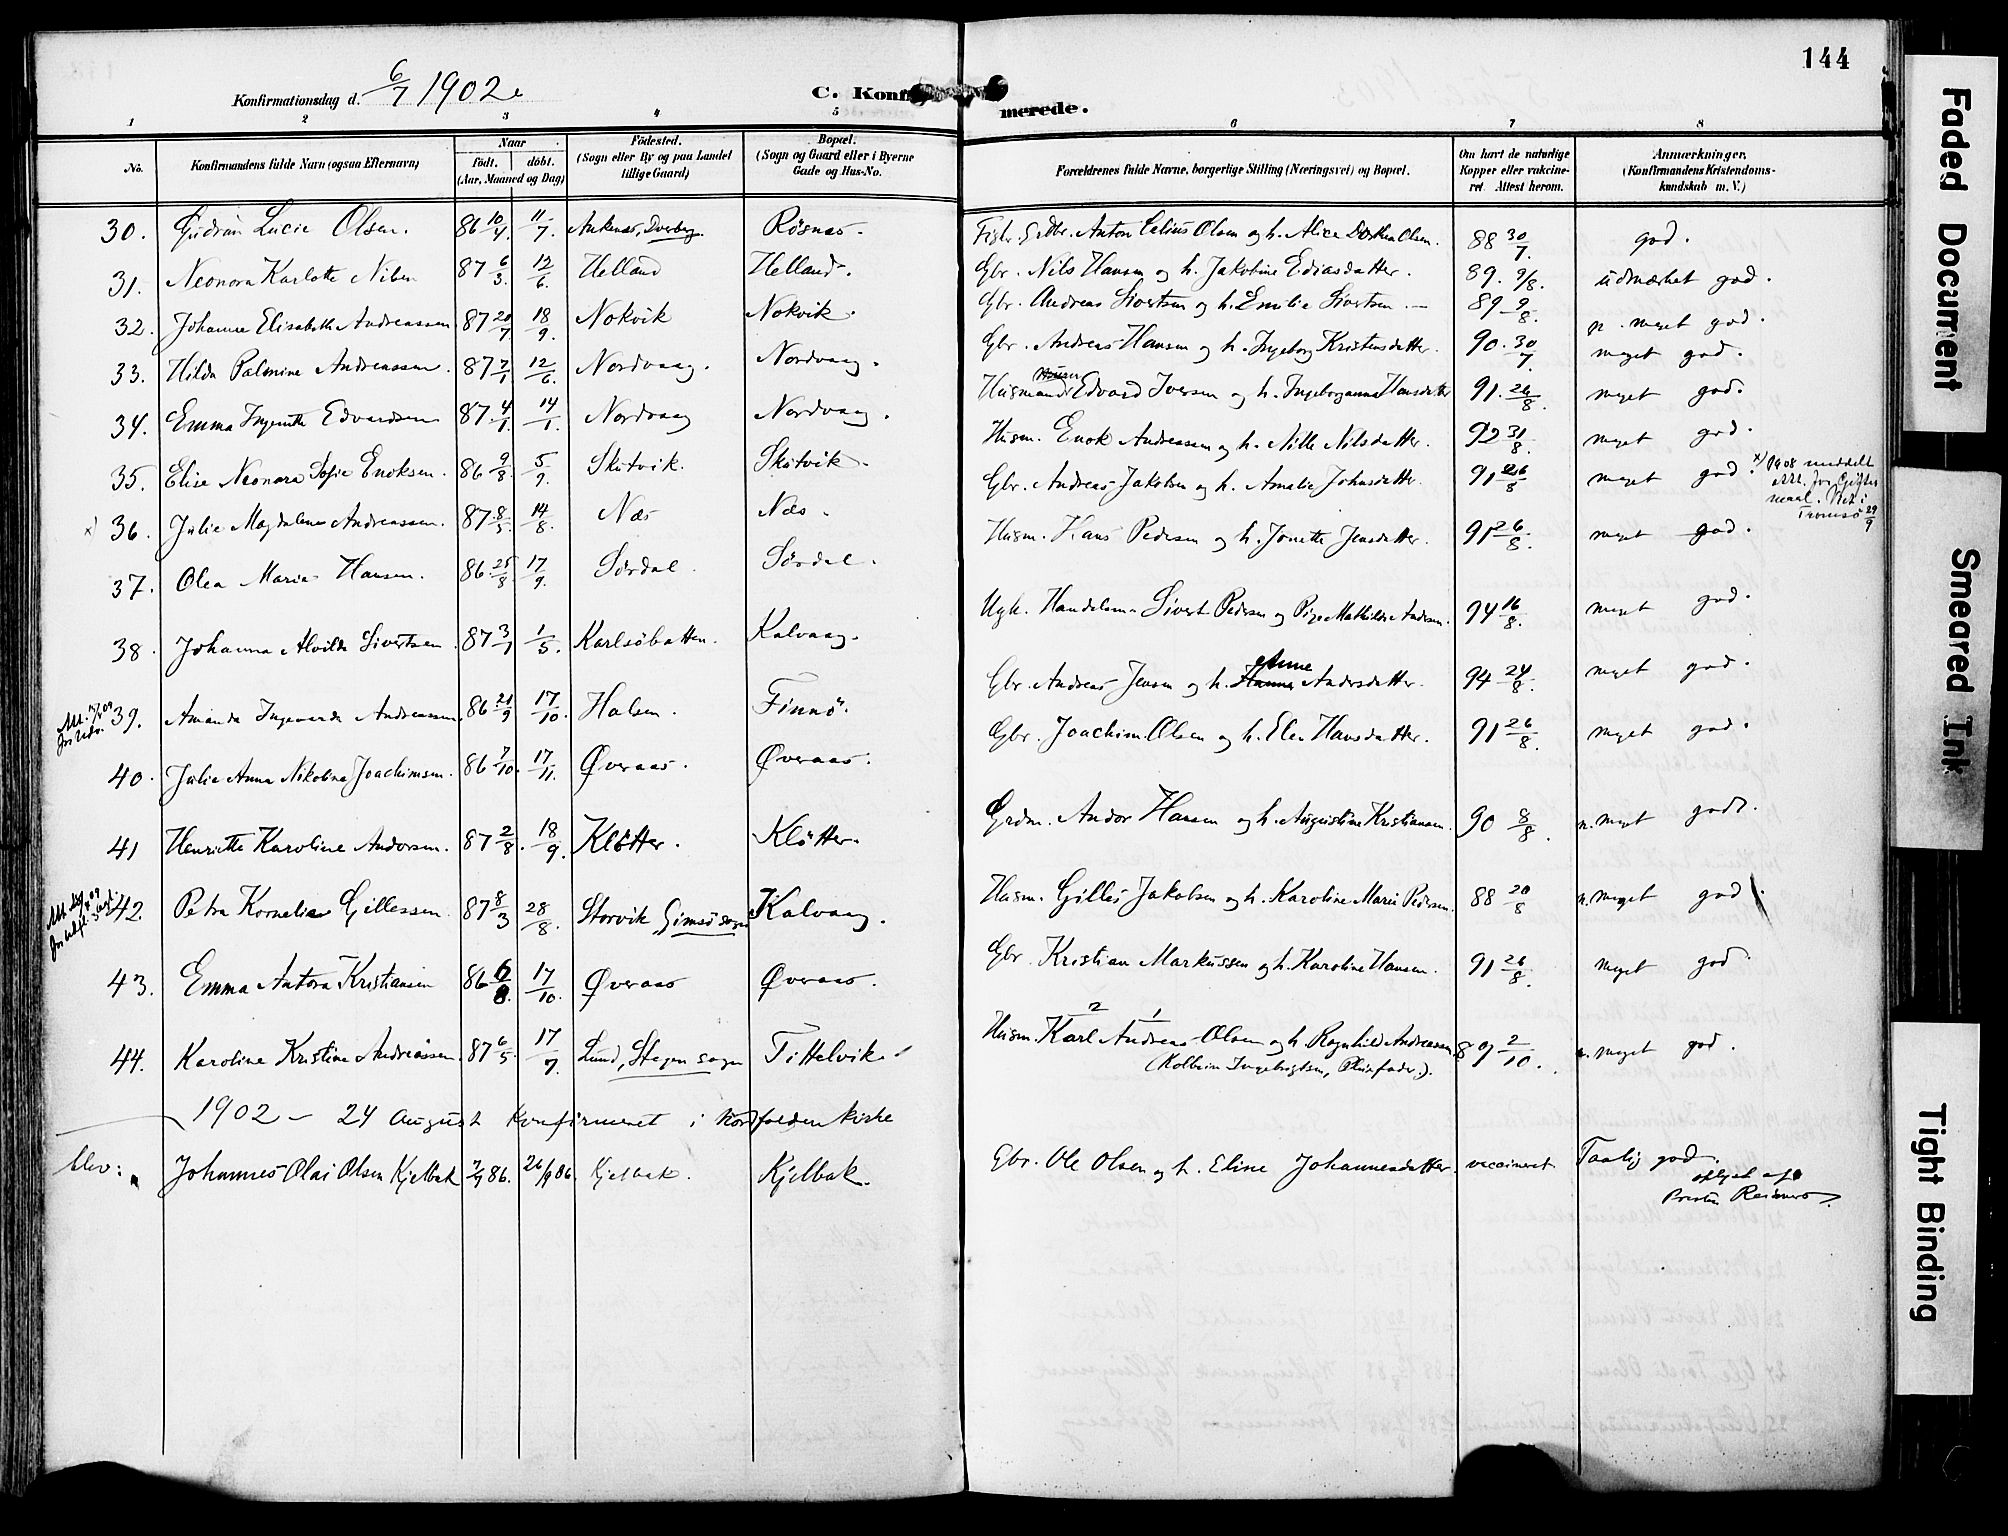 144
Konfirmationsdag d. 6/7 1902.
C. Konfirmerede.
1 2 3 4 5 6 7 8
No. Konfirmandens fulde Navn (ogsaa Efternavn) Naar født. døbt. (Aar, Maaned og Dag) Fødested. (Sogn eller By og paa Landet tillige Gaard) Bopæl. (Sogn og Gaard eller i Byerne Gade og Hus-No. Forældrenes fulde Navne, borgerlige Stilling (Næringsvei) og Bopæl. Om havt de naturlige Kopper eller vakcineret. Attest herom. Anmærkninger. (Konfirmandens Kristendomskundskab m. V.)
30. Gudrun Lucie Olsen. 86 10/4 11/7 Ankenes, Dverberg. Røsnes. Anton Celius Olsen og h. Alice Olsen. 88 30/7. god.
31. Neonora Karlotte Nilsen 87 6/3 12/6 Helland Helland. Gbr. Nils Hansen og h. Jakobine Ediasdatter. 89. 9/8. udmærket god.
32. Johanna Elisabeth Andreassen 87 20/7 18/9 Nokvik Nokvik. Gbr. Andreas Sivertsen og h. Emilie Sivertsen 89 9/8. n. meget god.
33. Hilda Palmine Andreassen. 87 7/1 12/6 Nordvaag. Nordvaag. Gbr. Andreas Hansen og h. Ingeborg Kristensdatter. 90. 30/7. meget god.
34. Emma Edvardsen 87 4/1 14/1 Nordvaag Nordvaag. Husmand Edvard Iversen og h. Ingeborganna Hansdatter 91. 26/8. meget god.
35. Elise Neonora Sofie Enoksen. 86 9/8 5/9 Skutvik. Skutvik. Husm. Enok Andreassen og h. Nille Nilsdatter. 92 31/8. meget god.
x) 36. Julie Magdalene Andreassen. 87 8/5 14/8 Næs Næs. Gbr. Andreas Jakobsen og h. Amalie Johnsdatter. 91 26/8 meget god. x) 1908 meddelt Att. for Giftermaal. Viet i Tromsø 29/9
37. Olea Maria Hansen. 86 25/8 17/9. Sørdal. Sørdal. Husm. Hans Pedersen og h. Jonette Jensdatter. 91 26/8. meget god.
38. Johanna Alvilda Sivertsen 87 3/1 1/5 Karlsøbatten. Kalvaag. Ugh. Handelsm. Sivert Pedersen og Pige Mathilde Andersen. 94 16/8. meget god.
39. Amanda Ingevarda Andreassen 86 21/9 17/10. Halsen. Finnø. Gbr. Andreas Jensen og h. Hanna Anne Andersdatter. 94 24/8. meget god.
40. Julie Anna Nikolina Joachimsen. 86 7/10. 17/11. Øveraas. Øveraas. Gbr. Joachim Olsen og h. Elen Hansdatter. 91 26/8. meget god.
41 Henriette Karoline Andorsen. 87 2/8. 18/9. Kløtter. Kløtter. Grdm. Andor Hansen og h. Augustine Kristiansen. 90 8/8. n. meget god.
42. Petra Kornelia Gillessen. 87 8/3 28/8. Storvik, Gimsø sogn Kalvaag. Husm. Gilles Jakobsen og h. Karoline Marie Pedersen. 88 20/8 n. meget god.
43. Emma Antora Kristiansen 86 6/8. 17/10. Øveraas Øveraas. Gbr. Kristian Markussen og h. Karoline Hansen. 91 26/8. meget god.
44. Karoline Kristine Andreassen 87 6/5. 17/7. Lund, Stegen sogn Tittelvik. Husm. Karl 2 Andreas 1 Olsen og h. Ragnhild Andreassen (Kolbein Ingebrigtsen, Pleiefader.). 89 2/10. n. meget god.
1902 – 24 August Konfirmeret i Nordfolden kirke
Johannes Olai Olsen Kjelbak 86. 26/9 86. Kjelbak. Kjelbak. Gbr. Ole Olsen og h. Eline Johannesdatter vaccineret Taalig god.
Faded Document
Smeared Ink
Tight Binding